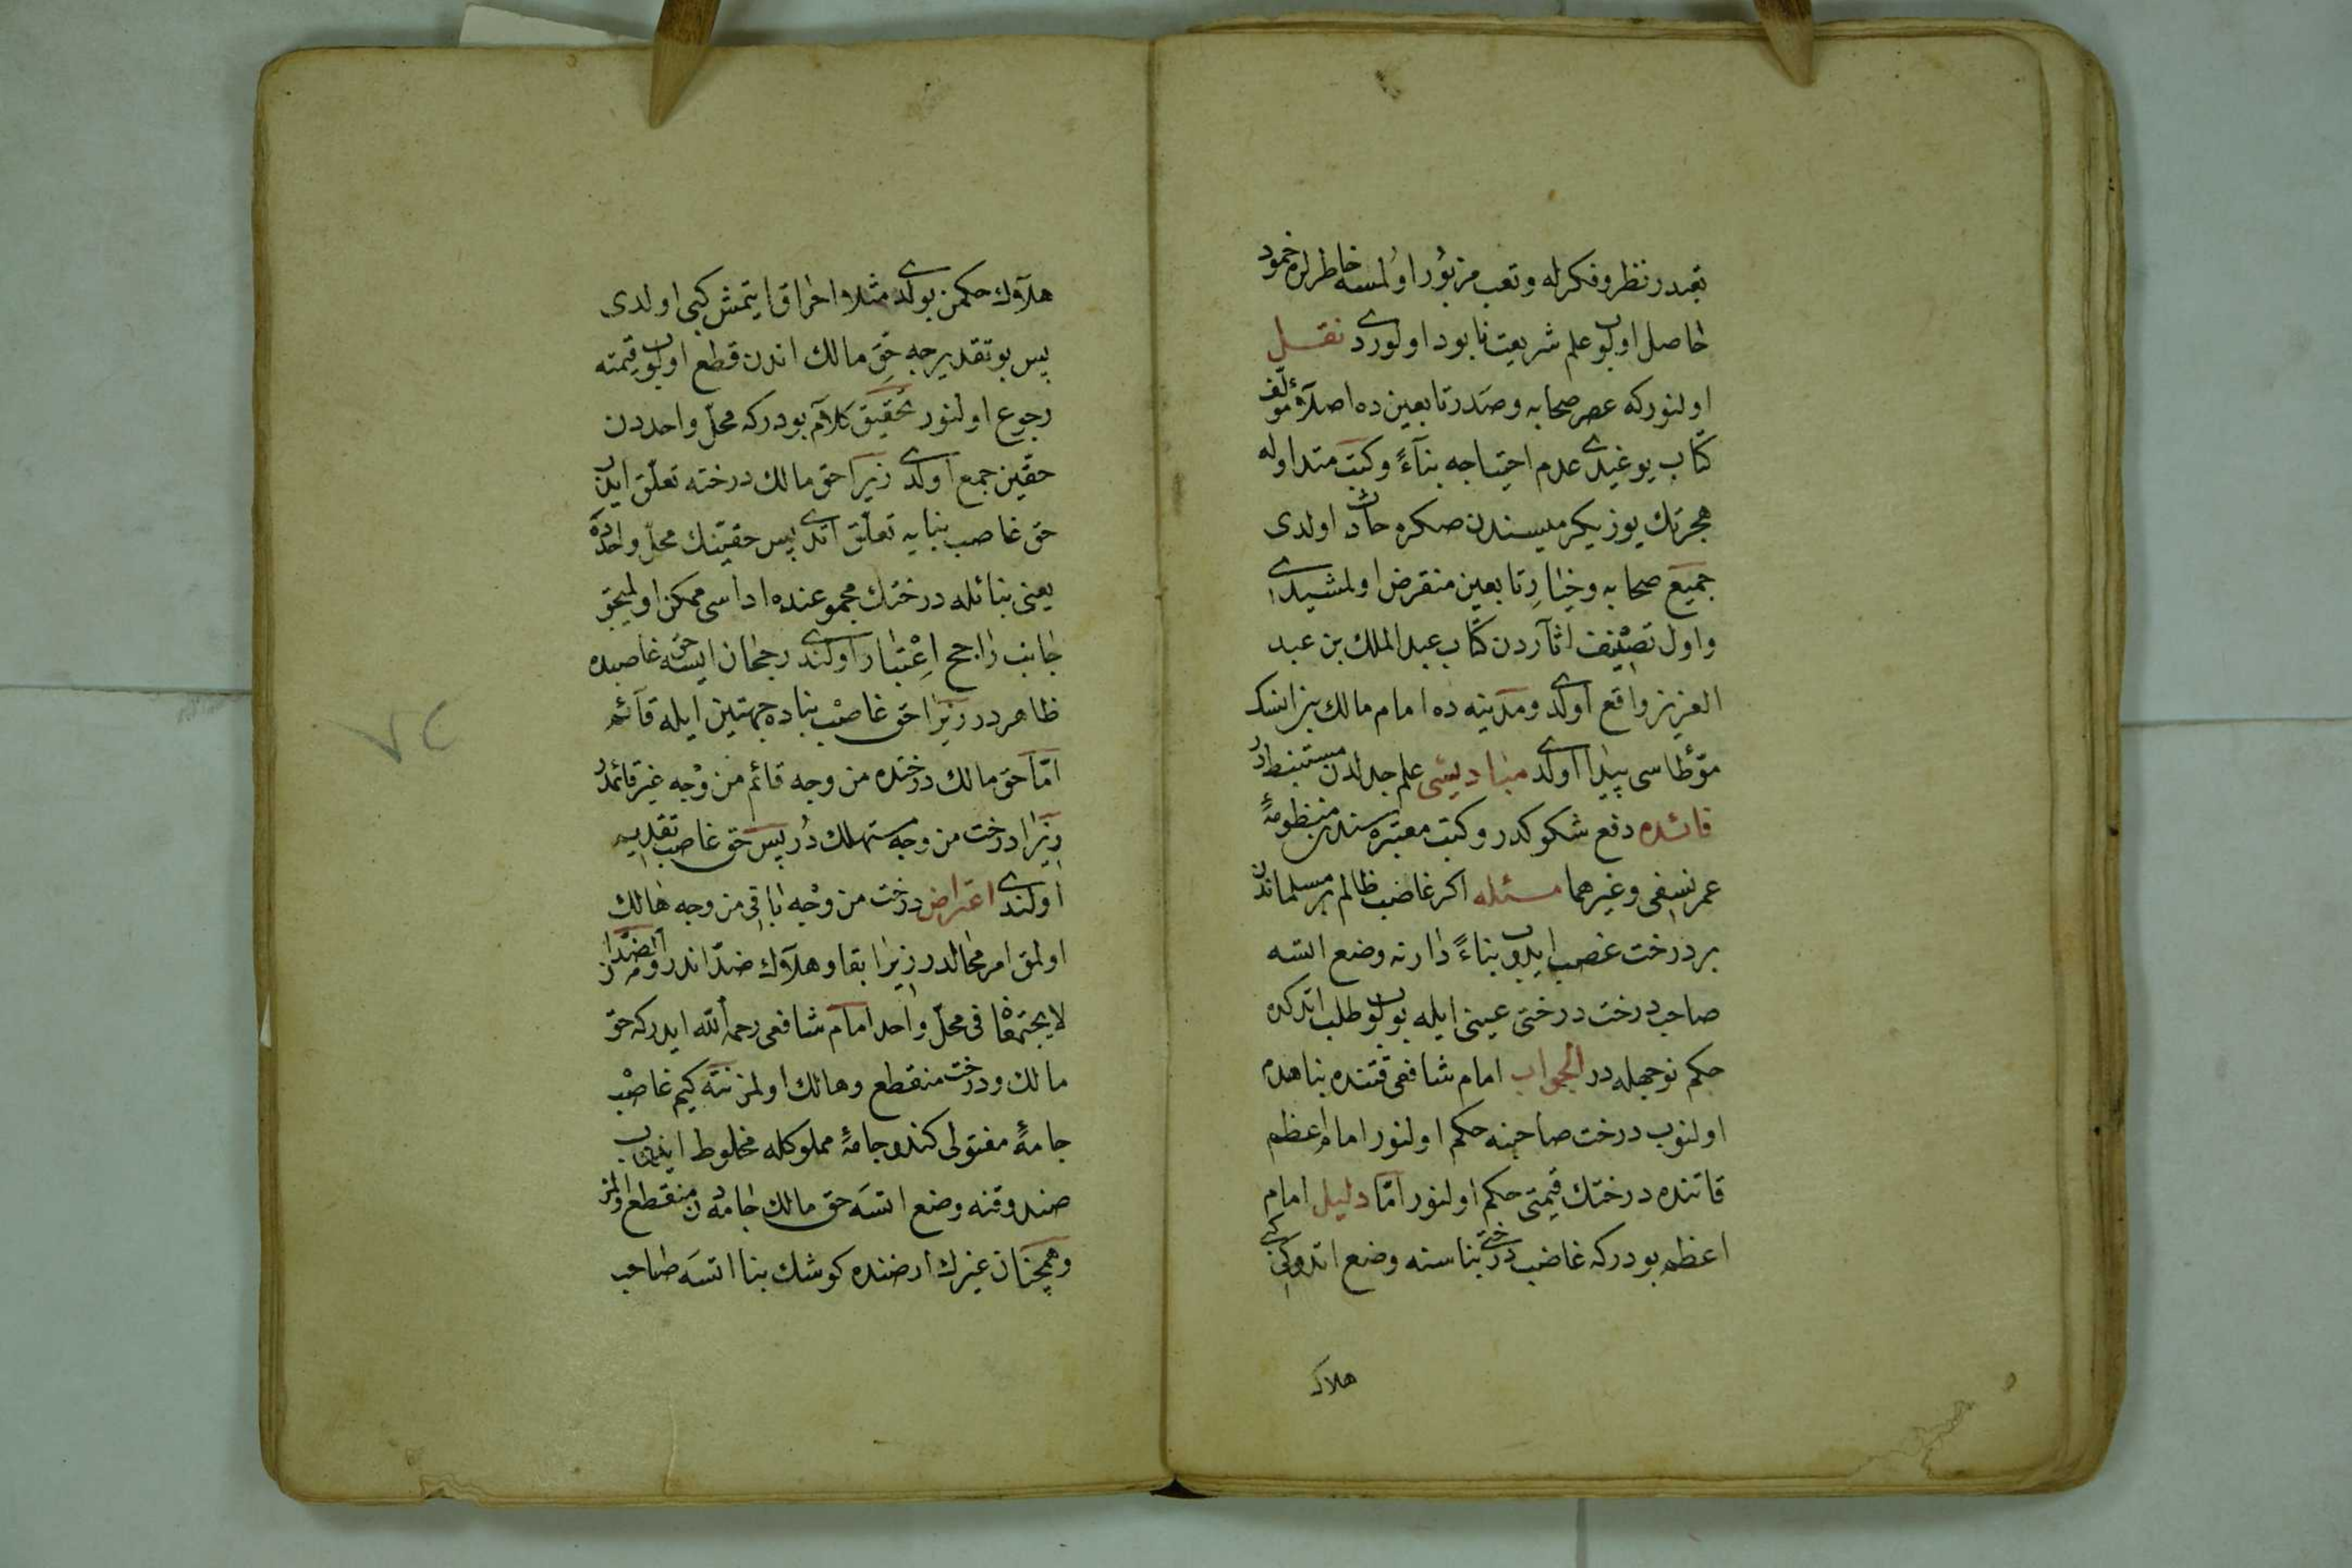 تعبدر نظر و فكرله و تعب مزبور اولمسه خاطرلره خمود
حاصل اولوب علم شريعت نابود اولوردى نقل
اولنور كه عصر صحابه و صدر تابعين ده اصلا مؤلف
كتاب يوغيدى عدم احتياجه بناءً و كتب متداوله
هجرتك يوز يكرميسندن صكره حادث اولدى
جميع صحابه و خيار تابعين منقرض اولمشيدى
و اول تصنيف اثآردن كتاب عبد الملك بن عبد
العزيز واقع اولدى و مدينه ده امام مالك بن انسك
مؤطاسى پيدا اولدى مباديسى علم جدلدن مستنبطدر
فائده دفع شكوكدر و كتب معتبره سندن منظومهٔ
عمر نسفى و غيرهما مسئله اكر غاصب ظالم بر مسلماندن
بر درخت غصب ايدوب بناءً دارنه وضع ائتسه
صاحب درخت درختى عينى ايله بولوب طلب اتدكده
حكم نوجهله در الجواب امام شافعى قتنده بنا هدم
اولنوب درخت صاحبنه حكم اولنور امام اعظم
قاتنده درختك قيمتى حكم اولنور امّا دليل امام
اعظم بودر كه غاصب درختى بناسنه وضع اتدوكى كبى
هلاك
هلاك حكمن بولدى مثلا احراق ايتمش كبى اولدى
پس بو تقديرجه حق مالك اندن قطع اولوب قيمته
رجوع اولنور تحقيق كلام بودر كه محلّ واحددن
حقين جمع اولدى زيرا حق مالك درخته تعلّق ايدوب
حق غاصب بنايه تعلّق اتدى پس حقينك محلّ واحده ده
يعنى بنائله درختك مجموعنده اداسى ممكن اولميجق
جانب راجح اعتبار اولندى رجحان ايسه حق غاصبده
ظاهردر زيرا حق غاصب بناده جهتين ايله قائم
امّا حق مالك درختده من وجه قائم من وجه غير قائمدر
زيرا درخت من وجه مستهلك در پس حق غاصب تقديم
اولندى اعتراض درخت من وجه باقى من وجه هالك
اولمق امر محالدر زيرا بقا و هلاك ضدّاندر و الضدّان
لا يجتمعان فى محلّ واحد امام شافعى رحمه الله ايدر كه حق
مالك و درخت منقطع و هالك اولمز نته كيم غاصب
جامهٔ مفتولى كندو جامهٔ مملوكله مخلوط ايدوب
صندوقنه وضع اتسه حق مالك جامه دن منقطع اولمز
و همچنان غيرك ارضنده كوشك بنا اتسه صاحب